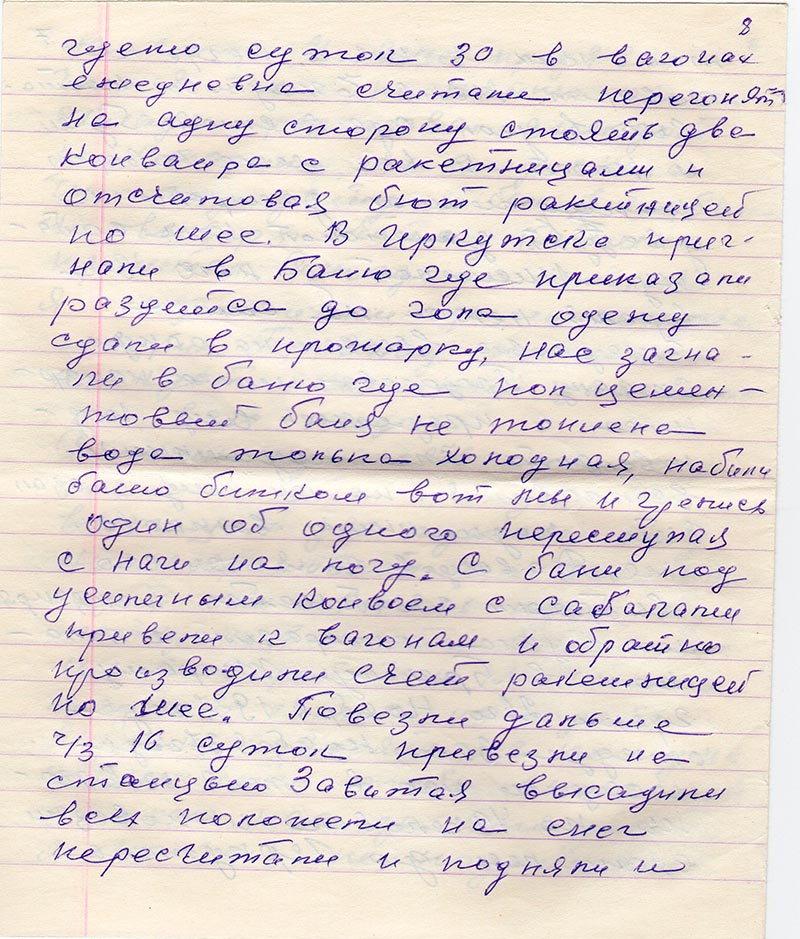 8
гдето суток 30 в вагонах
ежедневна считали перегонят
на адну сторону стоять два
конваира с ракетницами и
отсчитовая бют ракитницей
по шее. В Иркутске приг-
нали в Баню где приказали
раздется до гола одежу
сдали в прожарку, нас загна-
ли в баню где пол цемен-
товый баня не топлена
вода только холодная, набили
баню битком вот мы и грелись
один об одного переступая
с наги на ногу. С бани под
усиленым конвоем с сабаками
привели к вагонам и обратно
производили счет ракетницей
по шее. Повезли дальше
ч/з 16 суток привезли на
станцыю Завитая высадили
всех положели на снег
пересчитали и подняли и